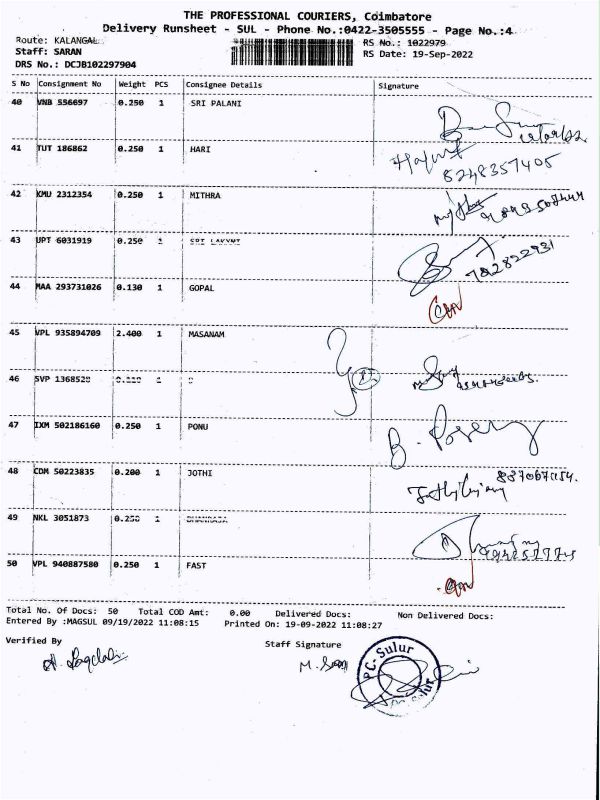 THE PROFESSIONAL COURIERS, Coimbatore
Delivery Runsheet - SUL - Phone No.:0422-3505555 - Page No.:4
Route: KALANGAL RS No.: 1022979
Staff: SARAN RS Date: 19-Sep-2022
DRS No.: DCJB102297904
S No Consignment No Weight PCS Consignee Details Signature
40 VNB 556697 0.250 1 SRI PALANI
41 TUT 186862 0.250 1 HARI
8248357405
42 KMU 2312354 0.250 1 MITHRA
43 UPT 6031919 0.250 1 SRI LAKYMI
7812822931
44 MAA 293731026 0.130 1 GOPAL
45 VPL 935894709 2.400 1 MASANAM
46 SVP 1368528 1
47 IXM 502186160 0.250 1 PONU
48 CDM 50223835 0.200 1 JOTHI
49 NKL 3051873 0.250 1
50 VPL 940887580 0.250 1 FAST
Total No. Of Docs: 50 Total COD Amt: 0.00 Delivered Docs: Non Delivered Docs:
Entered By :MAGSUL 09/19/2022 11:08:15 Printed On: 19-09-2022 11:08:27
Verified By Staff Signature
PC-Sulur